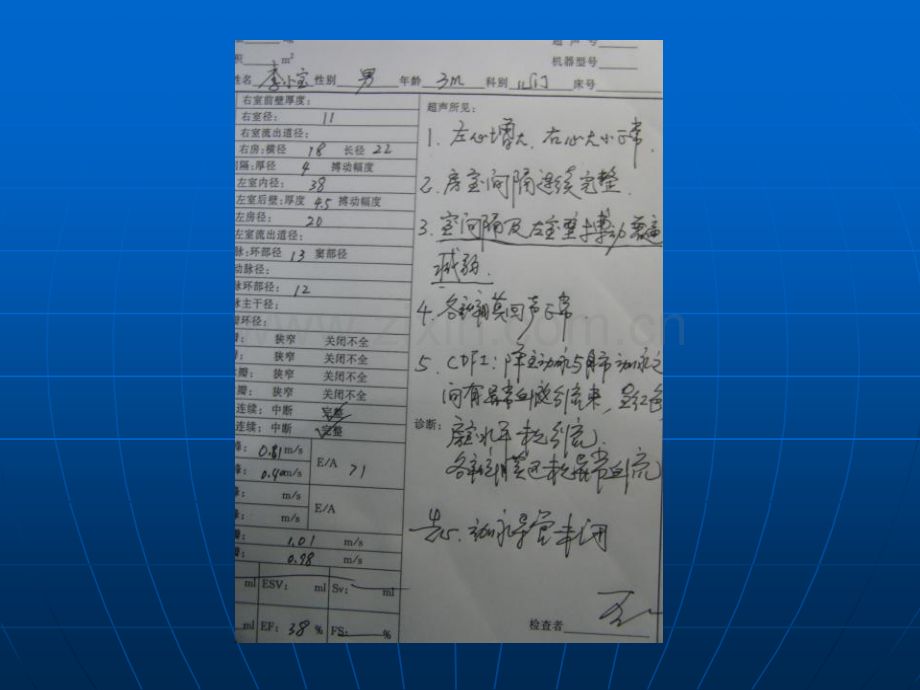 超声号
m²
机器型号
姓名 李小宝 性别 男 年龄 3m 科别 儿门 床号
右室前壁厚度:
右室径: 11
右室流出道径:
右房:横径 18 长径 22
隔:厚径 4 搏动幅度
左室内径: 38
左室后壁:厚度 4.5 搏动幅度
左房径: 20
左室流出道径:
脉:环部径: 13 窦部径
动脉径:
脉环部径: 12
脉主干径:
环径:
狭窄 关闭不全
狭窄 关闭不全
瓣: 狭窄 关闭不全
瓣: 狭窄 关闭不全
连续: 中断 完整
连续: 中断 完整
0.81 m/s
E/A >1
0.40 m/s
m/s
E/A
m/s
1.01 m/s
0.98 m/s
ml ESV: ml Sv: ml
EF: 38 % FS: %
超声所见:
1. 左心增大, 右心大小正常.
2. 房室间隔连续完整.
3. 室间隔及左室壁搏动幅度
减弱.
4. 各瓣膜回声正常.
5. CDFI: 降主动脉与肺动脉之
间有异常血液引流束, 呈红色
诊断:
房室水平未见引流.
各瓣膜口未见异常血流
先心. 动脉导管未闭
检查者
www.zixin.com.cn